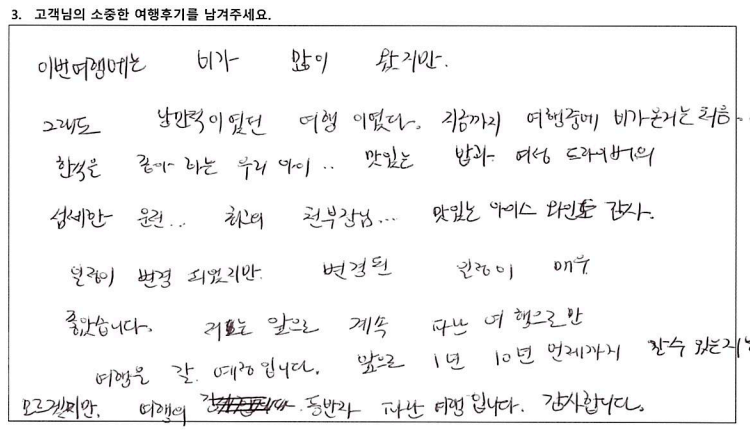 3. 고객님의 소중한 여행후기를 남겨주세요.
이번여행에는 비가 많이 왔지만.
그래도 낭만적이였던 여행 이였다. 지금까지 여행중에 비가온거는 처음..
한식을 좋아 라는 우리 아이.. 맛있는 밥과 여성 드라이버의
섬세한 운전... 최고의 천부장님... 맛있는 아이스 와인도 감사.
일정이 변경 되었지만. 변경된 일정이 매우
좋았습니다. 저는 앞으로 계속 파난 여행으로만
여행을 갈 예정입니다. 앞으로 1년 10년 언제까지 할수 있는지는
모르겠지만. 여행의 동반자 파난 여행입니다. 감사합니다.